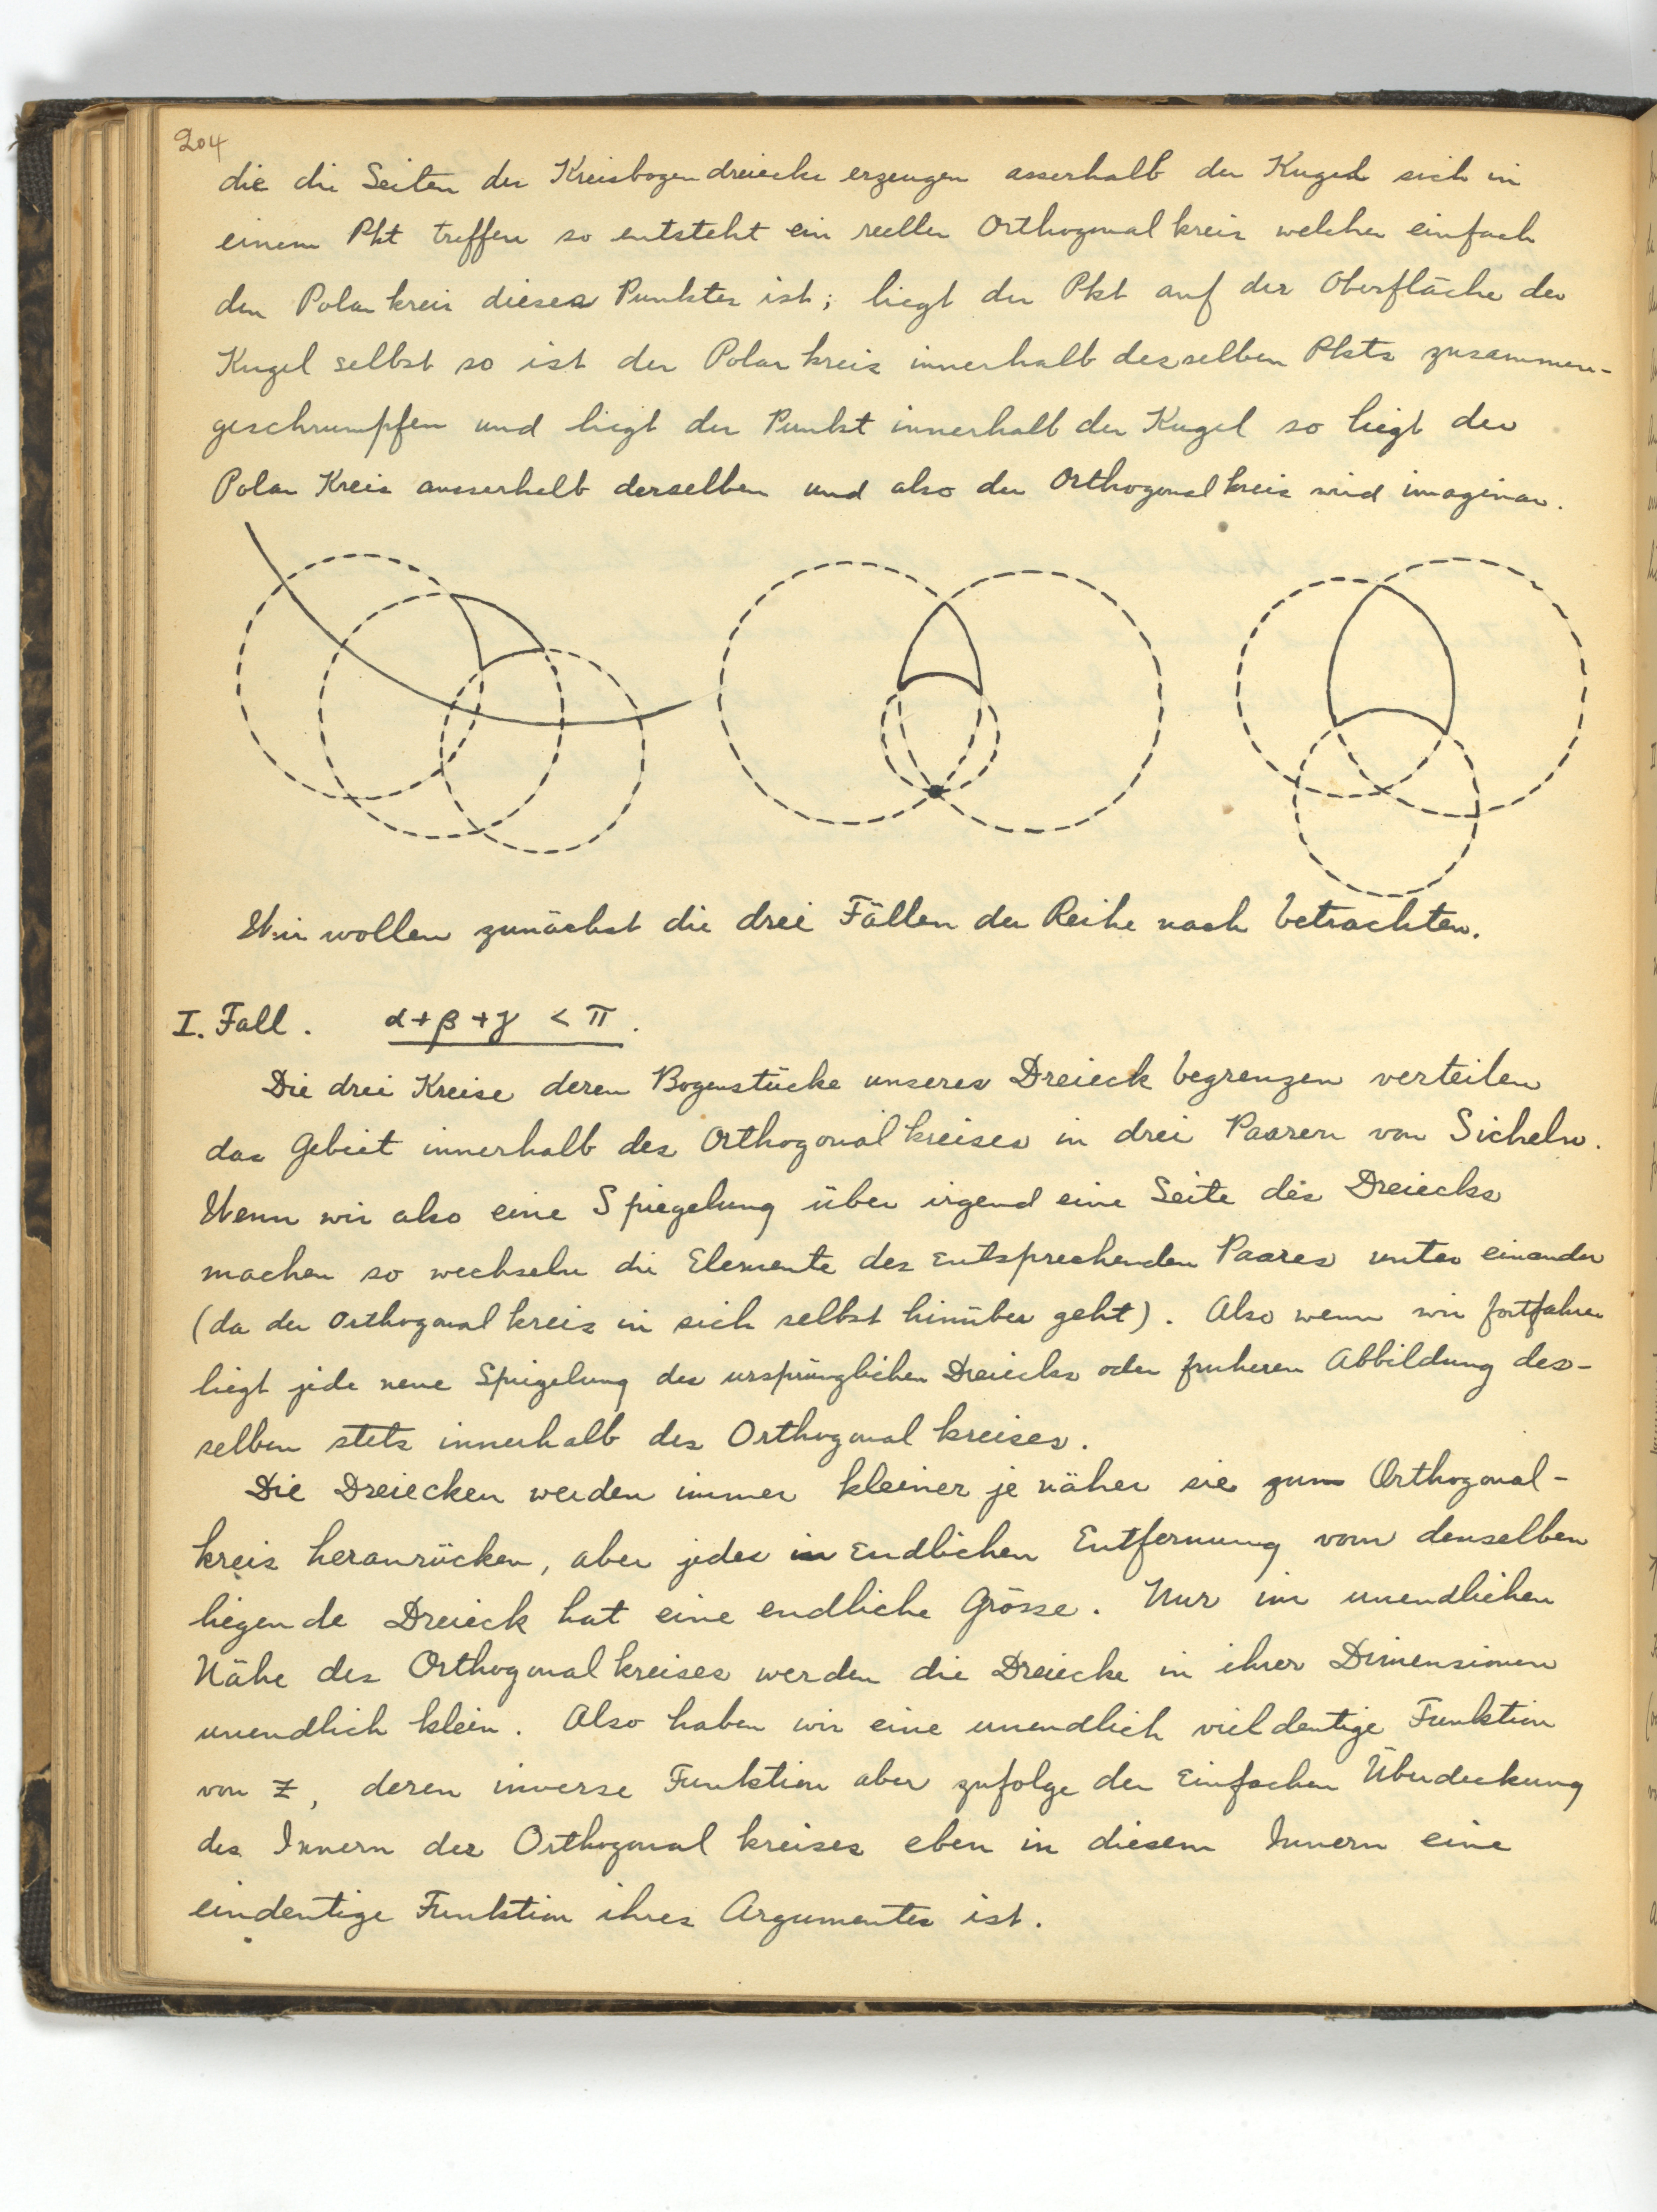 204
die die Seiten der Kreisbogendreiecke erzeugen asserhalb der Kugel sich in
einem Pkt treffen so entsteht ein reeller Orthogonalkreis welcher einfach
der Polarkreis dieses Punktes ist; liegt der Pkt auf der Oberfläche der
Kugel selbst so ist der Polarkreis innerhalb desselben Pkts zusammen-
geschrumpfen und liegt der Punkt innerhalb der Kugel so liegt der
Polar Kreis ausserhalb derselben und also der Orthogonalkreis wird imaginar.
Wir wollen zunächst die drei Fällen der Reihe nach betrachten.
I. Fall. α+β+γ < π.
Die drei Kreise deren Bogenstücke unseres Dreieck begrenzen verteilen
das Gebiet innerhalb des Orthogonalkreises in drei Paaren von Sicheln.
Wenn wir also eine Spiegelung über irgend eine Seite des Dreiecks
machen so wechseln die Elemente des entsprechenden Paares unter einander
(da der Orthogonalkreis in sich selbst hinüber geht). Also wenn wir fortfahren
liegt jede neue Spiegelung des ursprünglichen Dreiecks oder fruheren Abbildung des-
selben stets innerhalb des Orthogonalkreises.
Die Dreiecken werden immer kleiner je näher sie zum Orthogonal-
kreis heranrücken, aber jedes in endlichen Entfernung vom denselben
liegende Dreieck hat eine endliche Grösse. Nur im unendlichen
Nähe des Orthogonalkreises werden die Dreiecke in ihrer Dimensionen
unendlich klein. Also haben wir eine unendlich vieldeutige Funktion
von z, deren inverse Funktion aber zufolge der einfachen Überdeckung
des Innern des Orthogonalkreises eben in diesem Innern eine
eindeutige Funktion ihres Argumentes ist.